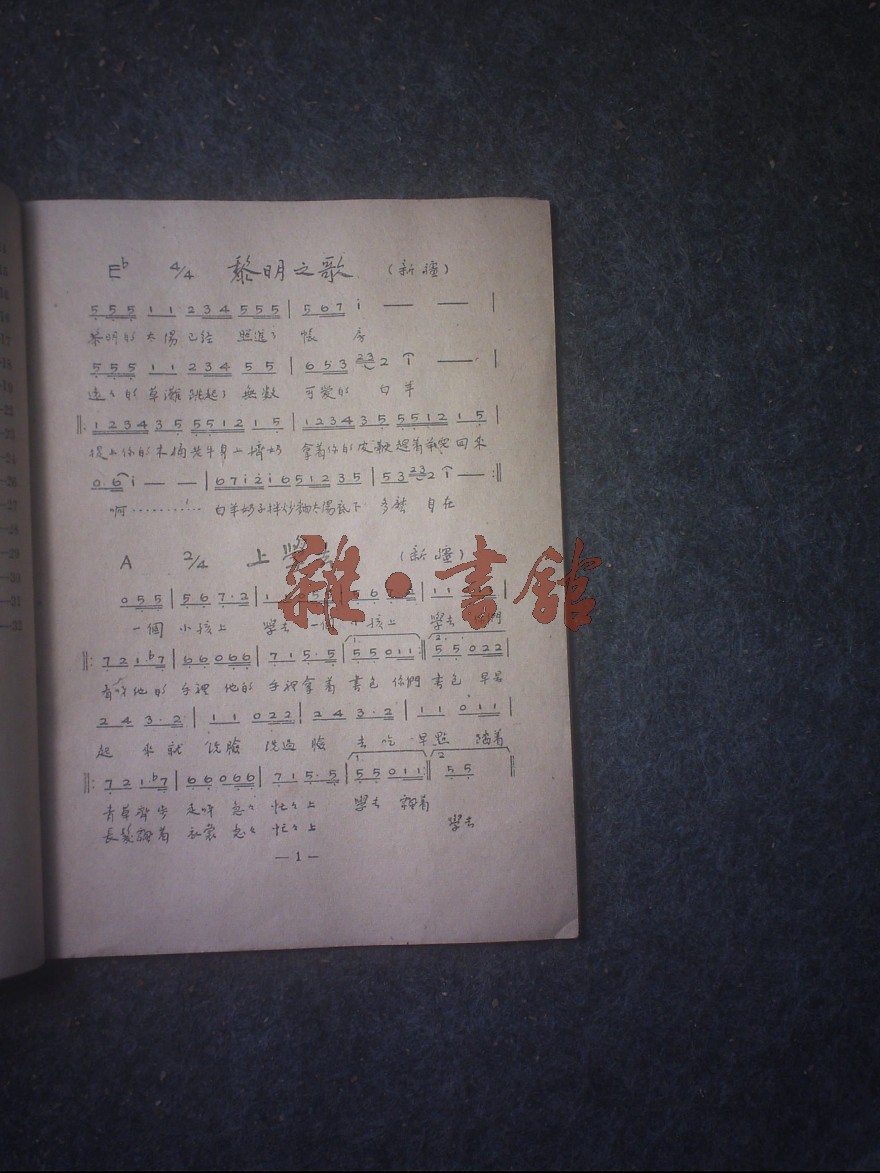 E♭ 4/4 黎明之歌 (新疆)
5 5 5 1 1 2 3 4 5 5 5 | 5 6 7 i — — |
黎明的太陽已經 照進了 帳 房
5 5 5 1 1 2 3 4 5 5 | 6 5 3 2 3 2 i — |
遠々的草灘跳起了 無数 可愛的 白羊
‖: 1 2 3 4 3 5 5 5 1 2 1 5 | 1 2 3 4 3 5 5 5 1 2 1 5 |
提上你的木桶 牛身上擠奶 拿着你的皮 趕着 回來
0 6 i — — | 6 7 i 2 i 6 5 1 2 3 5 | 5 3 2 3 2 i — :‖
啊………! 白羊奶子拌炒麵太陽底下 多 自在
A 2/4 上學去 (新疆)
0 5 5 | 5 6 7·2 | 1
一個 小孩上 學去 一個 小孩上 學去 你們
‖: 7 2 1 ♭7 | 6 6 0 6 6 | 7 1 5·5 | 1. 5 5 0 1 1 :‖ 2. 5 5 0 2 2 |
看呀他的 手裡 他的 手裡拿着 書包 你們 書包 早晨
2 4 3·2 | 1 1 0 2 2 | 2 4 3·2 | 1 1 0 1 1 |
起 來就 洗臉 洗過臉 去吃 早點 踏着
‖: 7 2 1 ♭7 | 6 6 0 6 6 | 7 1 5·5 | 1. 5 5 0 1 1 :‖ 2. 5 5 ‖
青草 步 走呀 忽々 忙々上 學去
長髮 着 衣裳 忽々 忙々上 學去
— 1 —
雜·書館